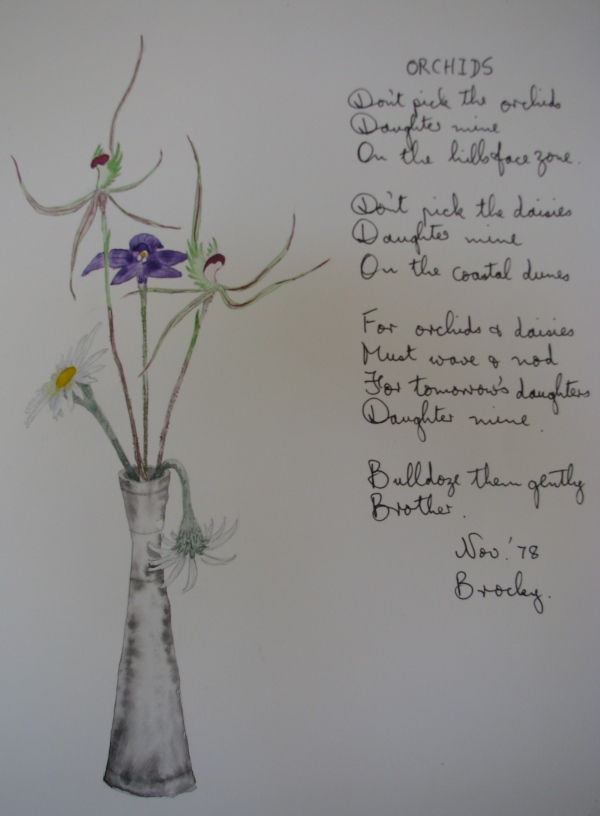 ORCHIDS
Don't pick the orchids
Daughter mine
On the hills face zone.
Don't pick the daisies
Daughter mine
On the coastal dunes
For orchids & daisies
Must wave & nod
For tomorrow's daughters
Daughter mine.
Bulldoze them gently
Brother.
Nov. '78
Brocky.